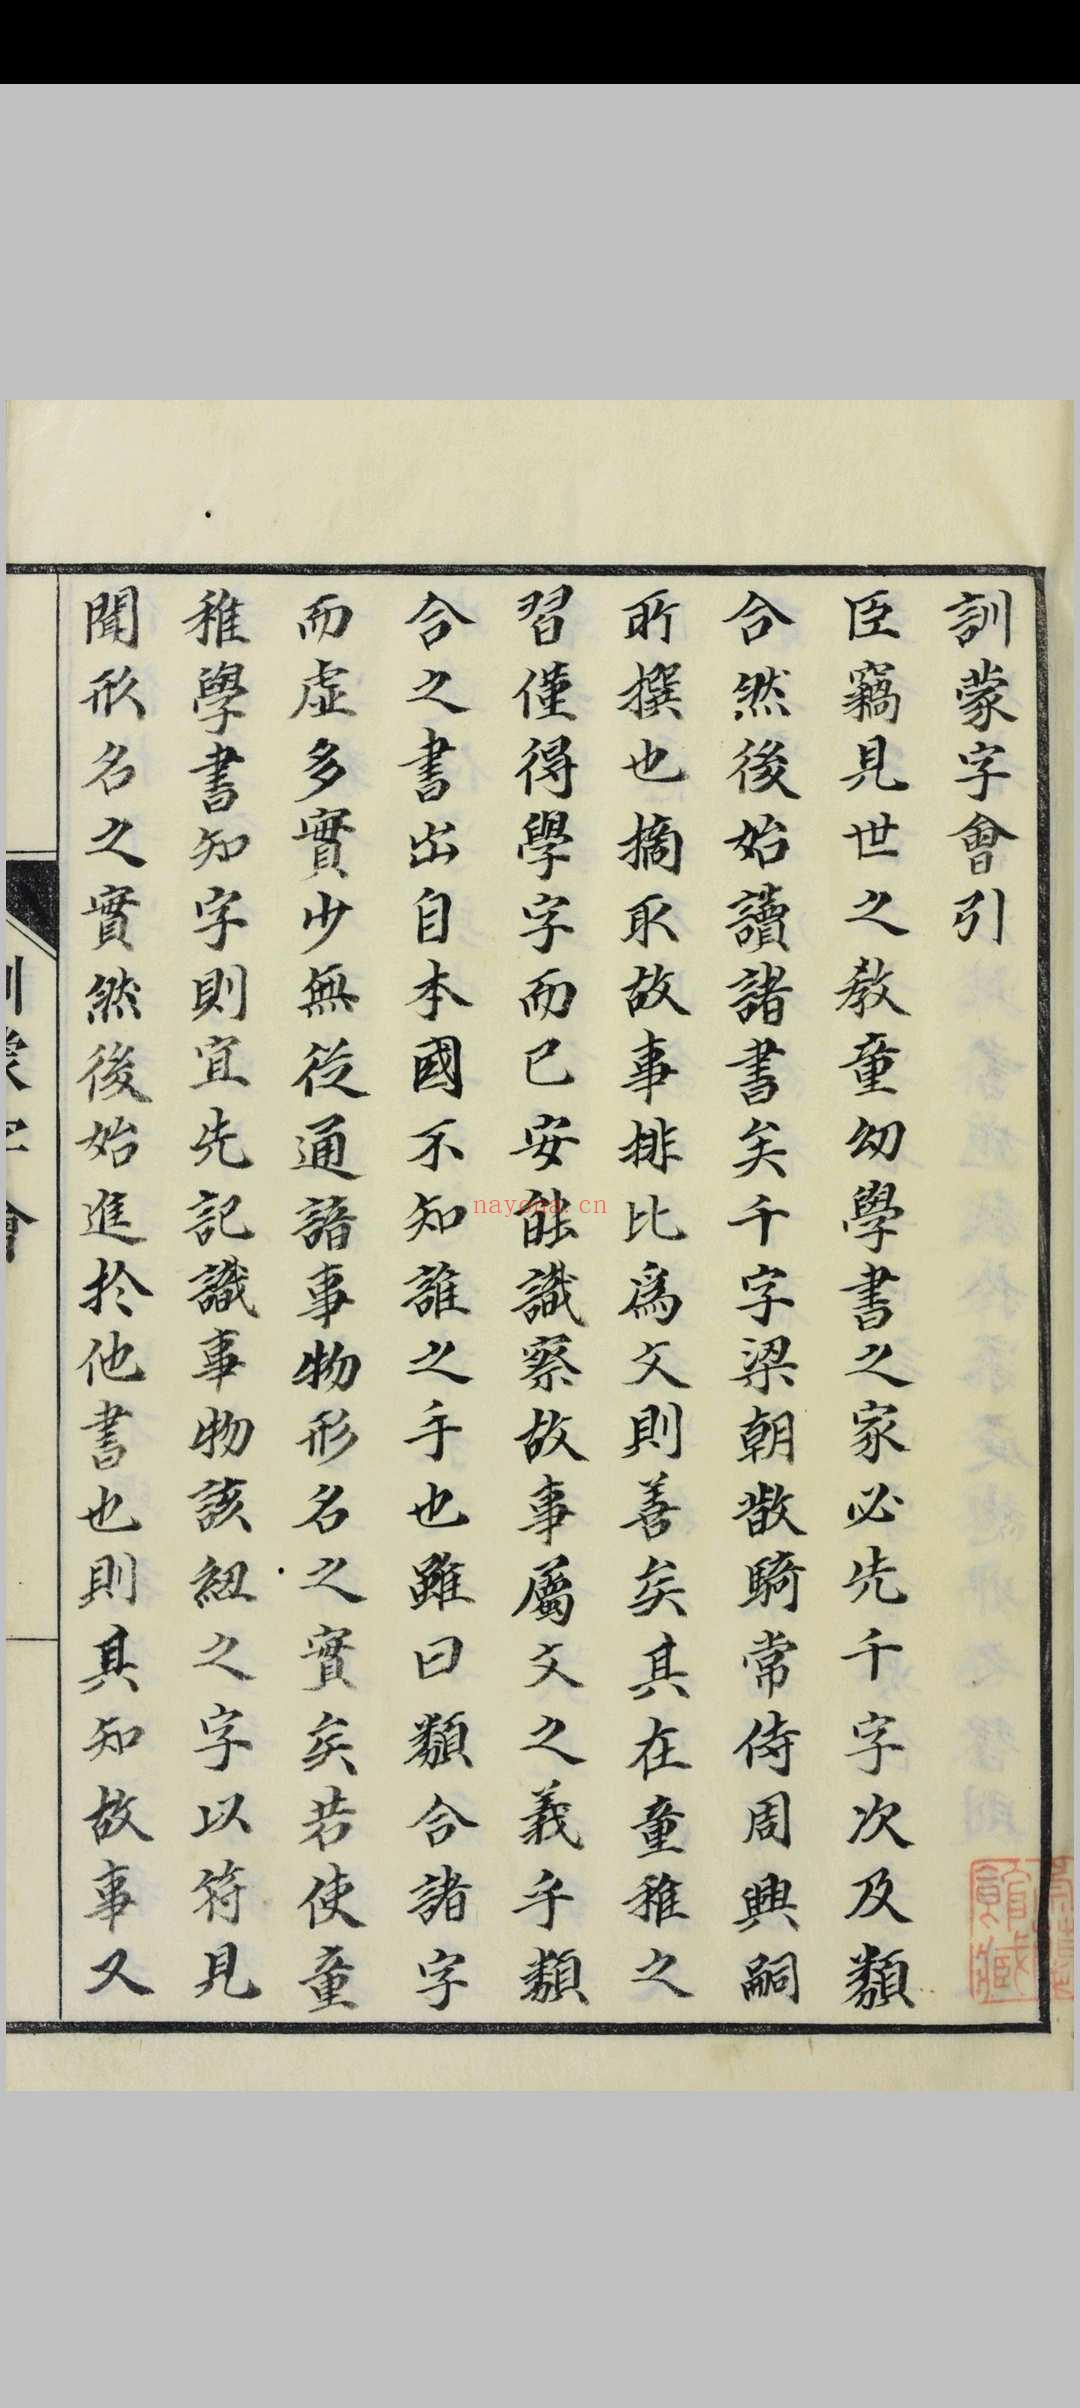 訓蒙字會引
臣竊見世之教童幼學書之家必先千字次及類
合然後始讀諸書矣千字梁朝散騎常侍周興嗣
所撰也摘取故事排比爲文則善矣其在童稚之
習僅得學字而已安能識察故事屬文之義乎類
合之書出自本國不知誰之手也雖曰類合諸字
而虛多實少無從通諳事物形名之實矣若使童
稚學書知字則宜先記識事物該紐之字以符見
聞形名之實然後始進於他書也則其知故事又
訓蒙字會
nayona.cn